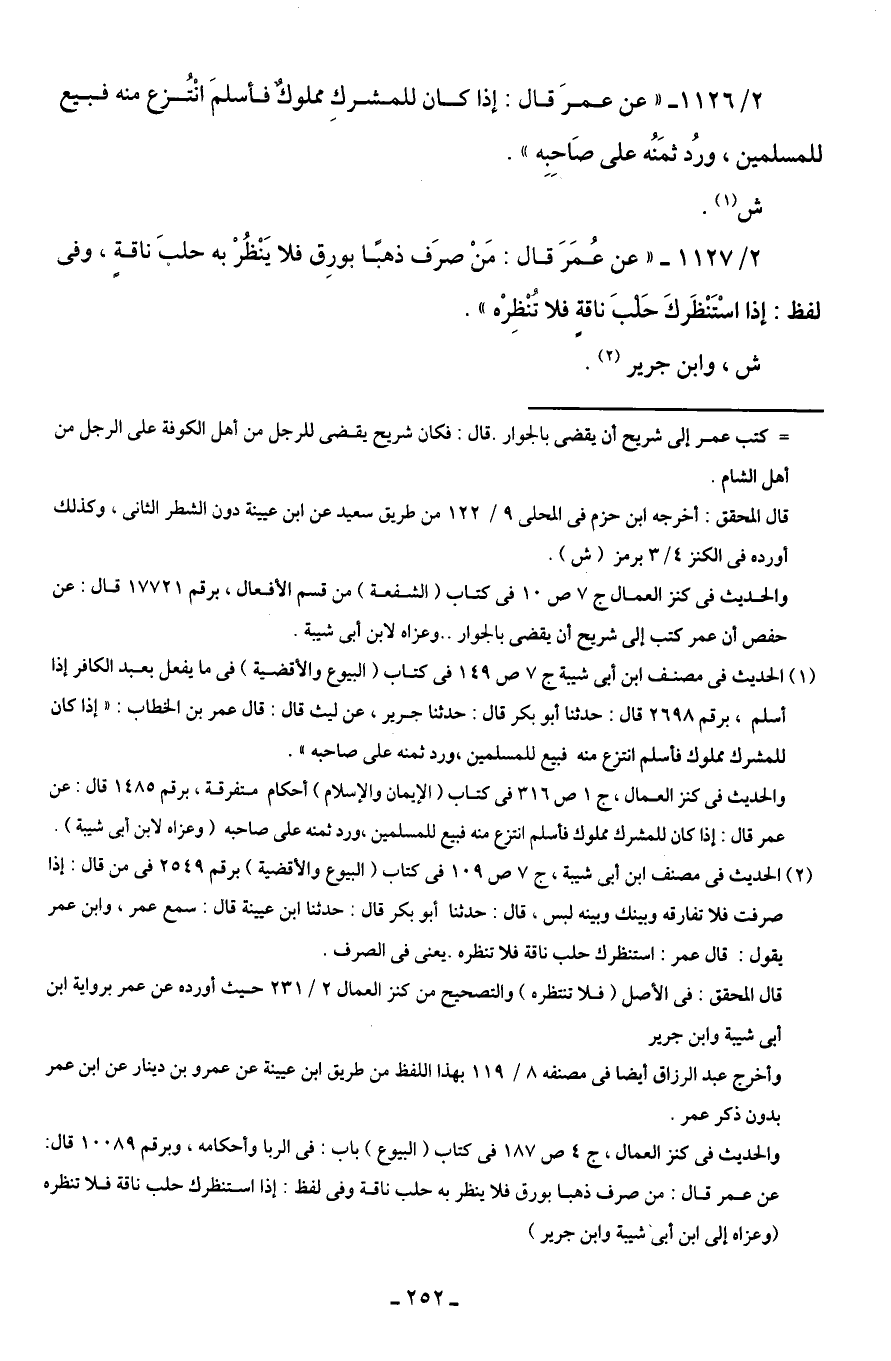 ٢/ ١١٢٦ـ « عن عـمـرَ قـال : إذا كـان للمـشـركِ مملوكٌ فـأسلمَ انْتُـزِع منه فـبـيع
للمسلمين ، ورُد ثمَنُه على صَاحِبِه » .
ش(١) .
٢/ ١١٢٧ ـ « عن عُـمَرَ قـال : مَنْ صرَف ذهبًا بورِق فلا يَنْظُرْ به حلبَ ناقـةٍ ، وفى
لفظ : إذا اسْتَنْظَرَكَ حَلْبَ ناقةٍ فلا تُنْظِرْه » .
ش ، وابن جرير (٢) .
= كتب عمـر إلى شريح أن يقضى بالجوار .قال : فكان شريح يقـضى للرجل من أهل الكوفة على الرجل من
أهل الشام .
قال المحقق : أخرجه ابن حزم فى المحلى ٩ / ١٢٢ من طريق سعيد عن ابن عيينة دون الشطر الثانى ، وكذلك
أورده فى الكنز ٤ /٣ برمز ( ش ) .
والحـديث فى كنز العمـال ج ٧ ص ١٠ فى كتاب ( الشـفعـة ) من قسم الأفـعال ، برقم ١٧٧٢١ قـال : عن
حفص أن عمر كتب إلى شريح أن يقضى بالجوار ..وعزاه لابن أبى شيبة .
(١) الحديث فى مصنـف ابن أبى شيبة ج ٧ ص ١٤٩ فى كتـاب ( البيوع والأقضـية ) فى ما يفعل بعـبد الكافر إذا
أسلم ، برقم ٢٦٩٨ قال : حدثنا أبو بكر قال : حدثنا جـرير ، عن ليث قال : قال عمر بن الخطاب : « إذا كان
للمشرك مملوك فأسلم انتزع منه فبيع للمسلمين ،ورد ثمنه على صاحبه » .
والحديث فى كنز العـمال ، ج ١ ص ٣١٦ فى كتاب ( الإيمان والإسلام ) أحكام متفرقة ، برقم ١٤٨٥ قال : عن
عمر قال : إذا كان للمشرك مملوك فأسلم انتزع منه فبيع للمسلمين ،ورد ثمنه على صاحبه ( وعزاه لابن أبى شيبة ) .
(٢) الحديث فى مصنف ابن أبى شيبة ، ج ٧ ص ١٠٩ فى كتاب ( البيوع والأقضية ) برقم ٢٥٤٩ فى من قال : إذا
صرفت فلا تفارقه وبينك وبينه لبس ، قال : حدثنا أبو بكر قال : حدثنا ابن عيينة قال : سمع عمر ، وابن عمر
يقول : قال عمر : استنظرك حلب ناقة فلا تنظره .يعنى فى الصرف .
قال المحقق : فى الأصل ( فـلا تنتظره ) والتصحيح من كنز العمال ٢ / ٢٣١ حـيث أورده عن عمر برواية ابن
أبى شيبة وابن جرير
وأخرج عبد الرزاق أيضا فى مصنفه ٨ / ١١٩ بهذا اللفظ من طريق ابن عيينة عن عمرو بن دينار عن ابن عمر
بدون ذكر عمر .
والحديث فى كنز العمال ، ج ٤ ص ١٨٧ فى كتاب ( البيوع ) باب : فى الربا وأحكامه ، وبرقم ١٠٠٨٩ قال:
عن عـمر قـال : من صرف ذهبـا بورق فلا ينظر به حلب ناقـة وفى لفظ : إذا استـنظرك حلب ناقة فـلا تنظره
(وعزاه إلى ابن أبى شيبة وابن جرير )
ـ ٢٥٢ ـ